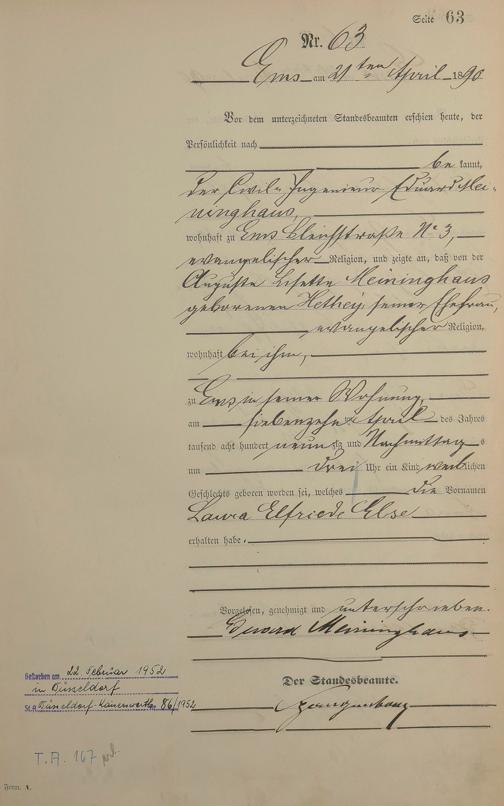 Seite 63
Nr. 63
Ems am 21ten April 1890
Vor dem unterzeichneten Standesbeamten erschien heute, der
Persönlichkeit nach
be kannt,
der Civil-Ingenieur Eduard Mei-
ninghaus,
wohnhaft zu Ems Bleichstraße No 3,
evangelischer Religion, und zeigte an, daß von der
Auguste Lisette Meininghaus
geborenen Hethey, seiner Ehefrau,
evangelischer Religion,
wohnhaft bei ihm,
zu Ems in seiner Wohnung,
am siebenzehn April des Jahres
tausend acht hundert neunzig und Nachmittags
um drei Uhr ein Kind weiblichen
Geschlechts geboren worden sei, welches die Vornamen
Laura Elfriede Else
erhalten habe.
Vorgelesen, genehmigt und unterschrieben.
Eduard Meininghaus
Der Standesbeamte.
Gestorben am 22. Februar 1952
in Düsseldorf
St.A. Düsseldorf-Kaiserswerth 86/1952
T.A. 167
Form. A.